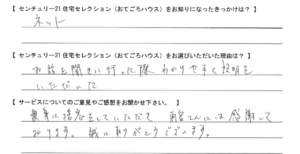 【 センチュリー21 住宅セレクション（おてごろハウス）をお知りになったきっかけは？ 】
ネット
【 センチュリー21 住宅セレクション（おてごろハウス）をお選びいただいた理由は？ 】
お話を聞きに行った際 わかりやすく説明を
いただいた
【 サービスについてのご意見やご感想をお聞かせ下さい。 】
親身に接客をしていただて には感謝して
おります。誠にありがとうございます。